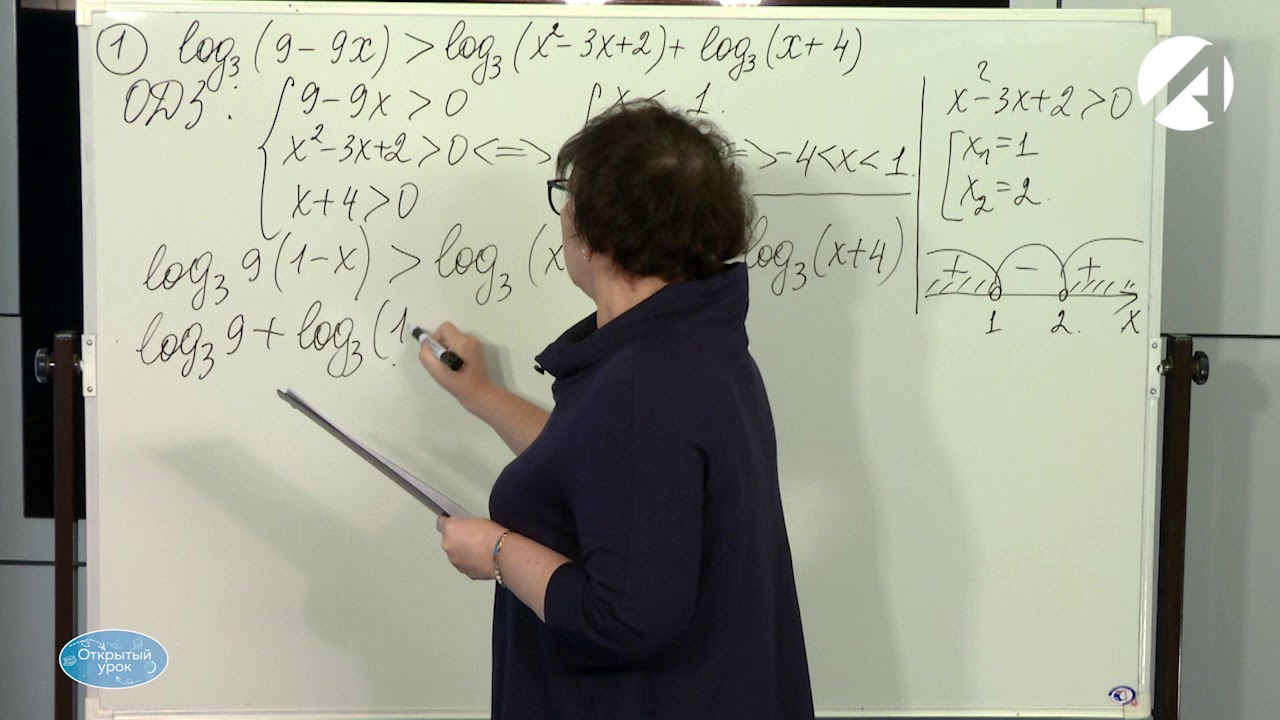 ① log₃(9-9x) > log₃(x²-3x+2) + log₃(x+4)
ОДЗ: { 9-9x > 0 { x < 1.
x²-3x+2 > 0 <=> => -4 < x < 1.
x+4 > 0
log₃ 9(1-x) > log₃(x log₃(x+4)
log₃ 9 + log₃(1
x²-3x+2 > 0
[ x₁ = 1
x₂ = 2.
+ - +
1 2. x
Открытый
урок